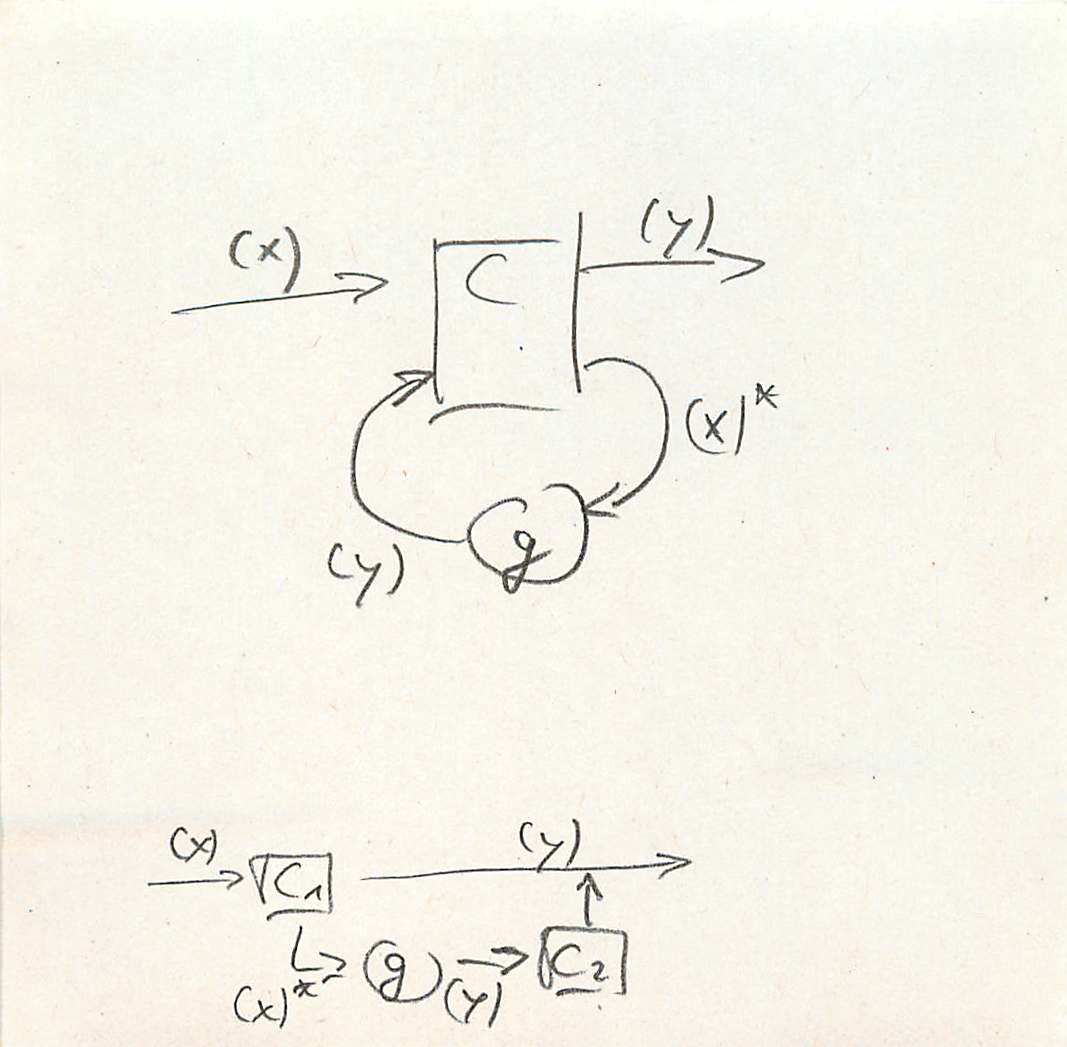 (x)
C
(y)
(x)*
(y)
g
(x)
C1
(y)
(x)*
g
(y)
C2